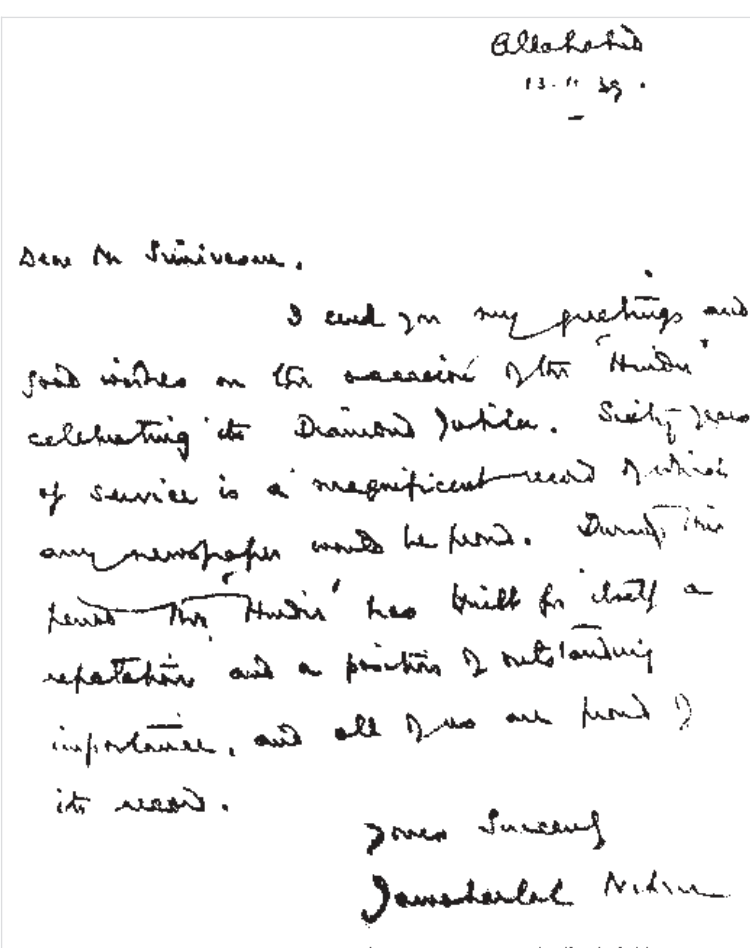 Allahabad
13.11.39.
Dear Mr Srinivasan,
I send you my greetings and
good wishes on the occasion of the 'Hindu'
celebrating its Diamond Jubilee. Sixty years
of service is a magnificent record of which
any newspaper would be proud. During this
period the 'Hindu' has built for itself a
reputation and a position of outstanding
importance, and all of us are proud of
its record.
Yours Sincerely
Jawaharlal Nehru